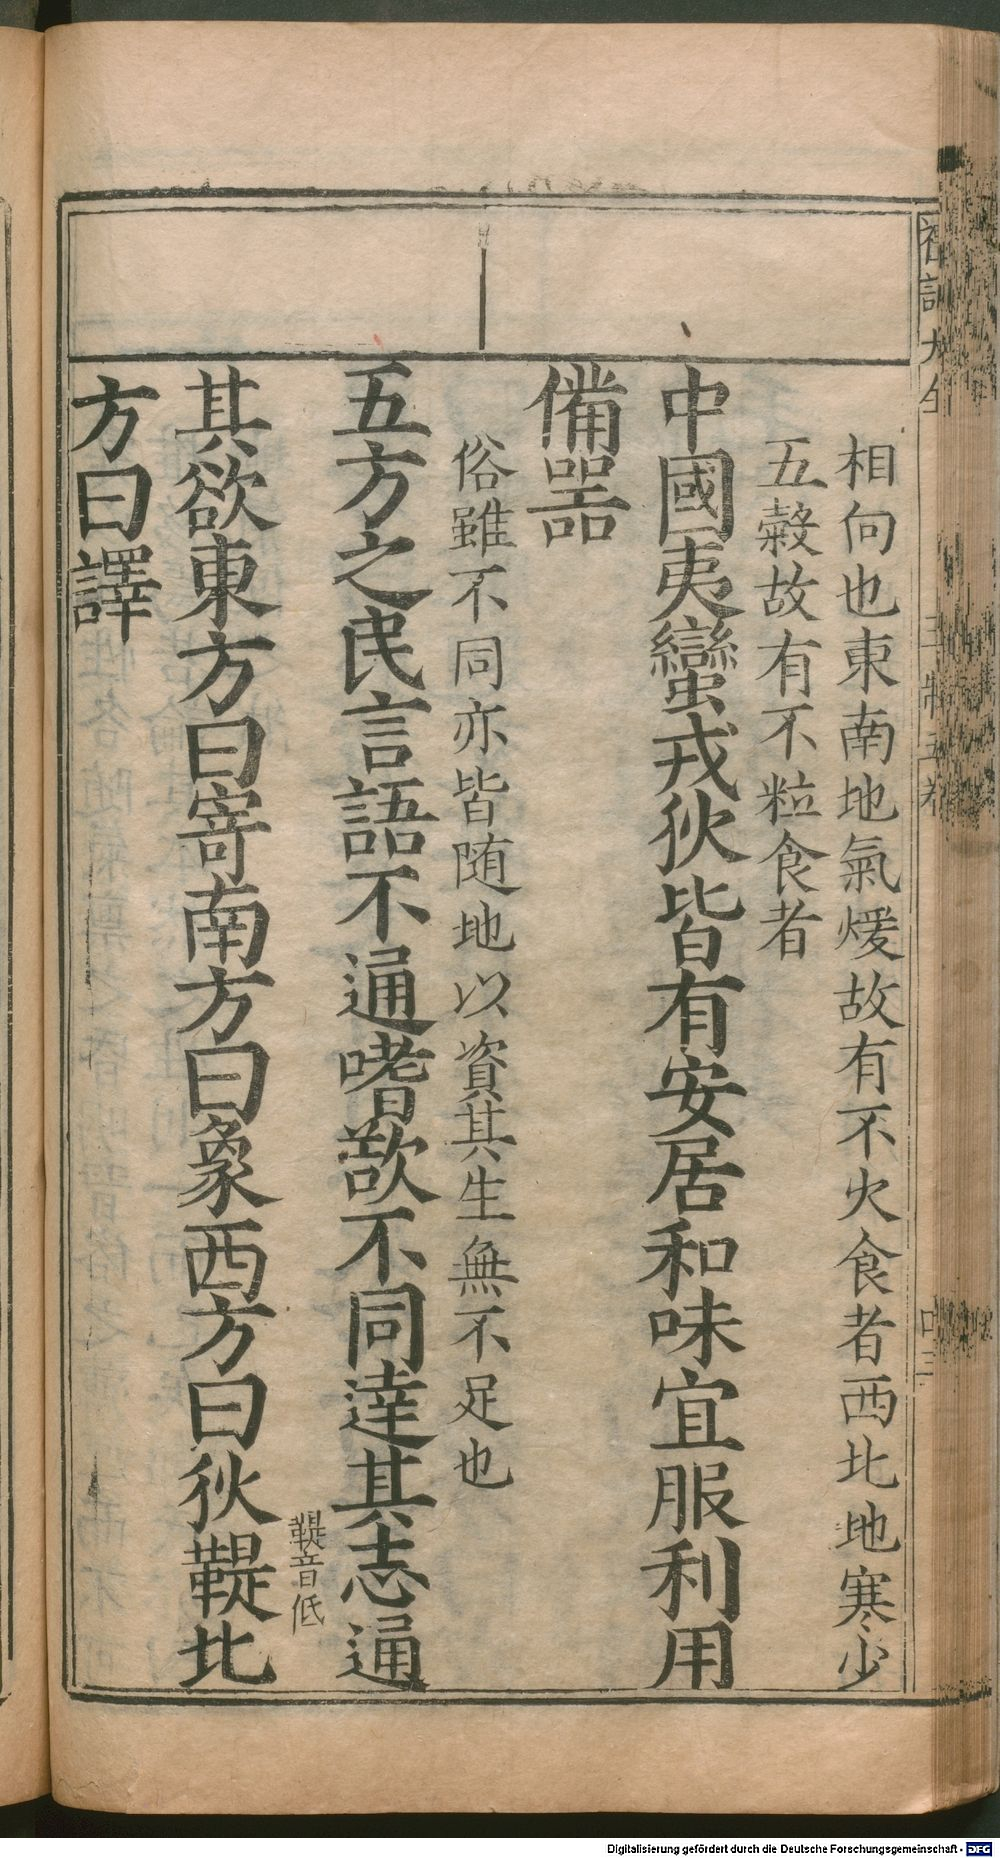 相向也東南地氣煖故有不火食者西北地寒少
五穀故有不粒食者
中國夷蠻戎狄皆有安居和味宜服利用
備噐
俗雖不同亦皆随地以資其生無不足也
五方之民言語不通嗜欲不同達其志通
鞮音低
其欲東方曰寄南方曰象西方曰狄鞮北
方曰譯
Digitalisierung gefördert durch die Deutsche Forschungsgemeinschaft - DFG